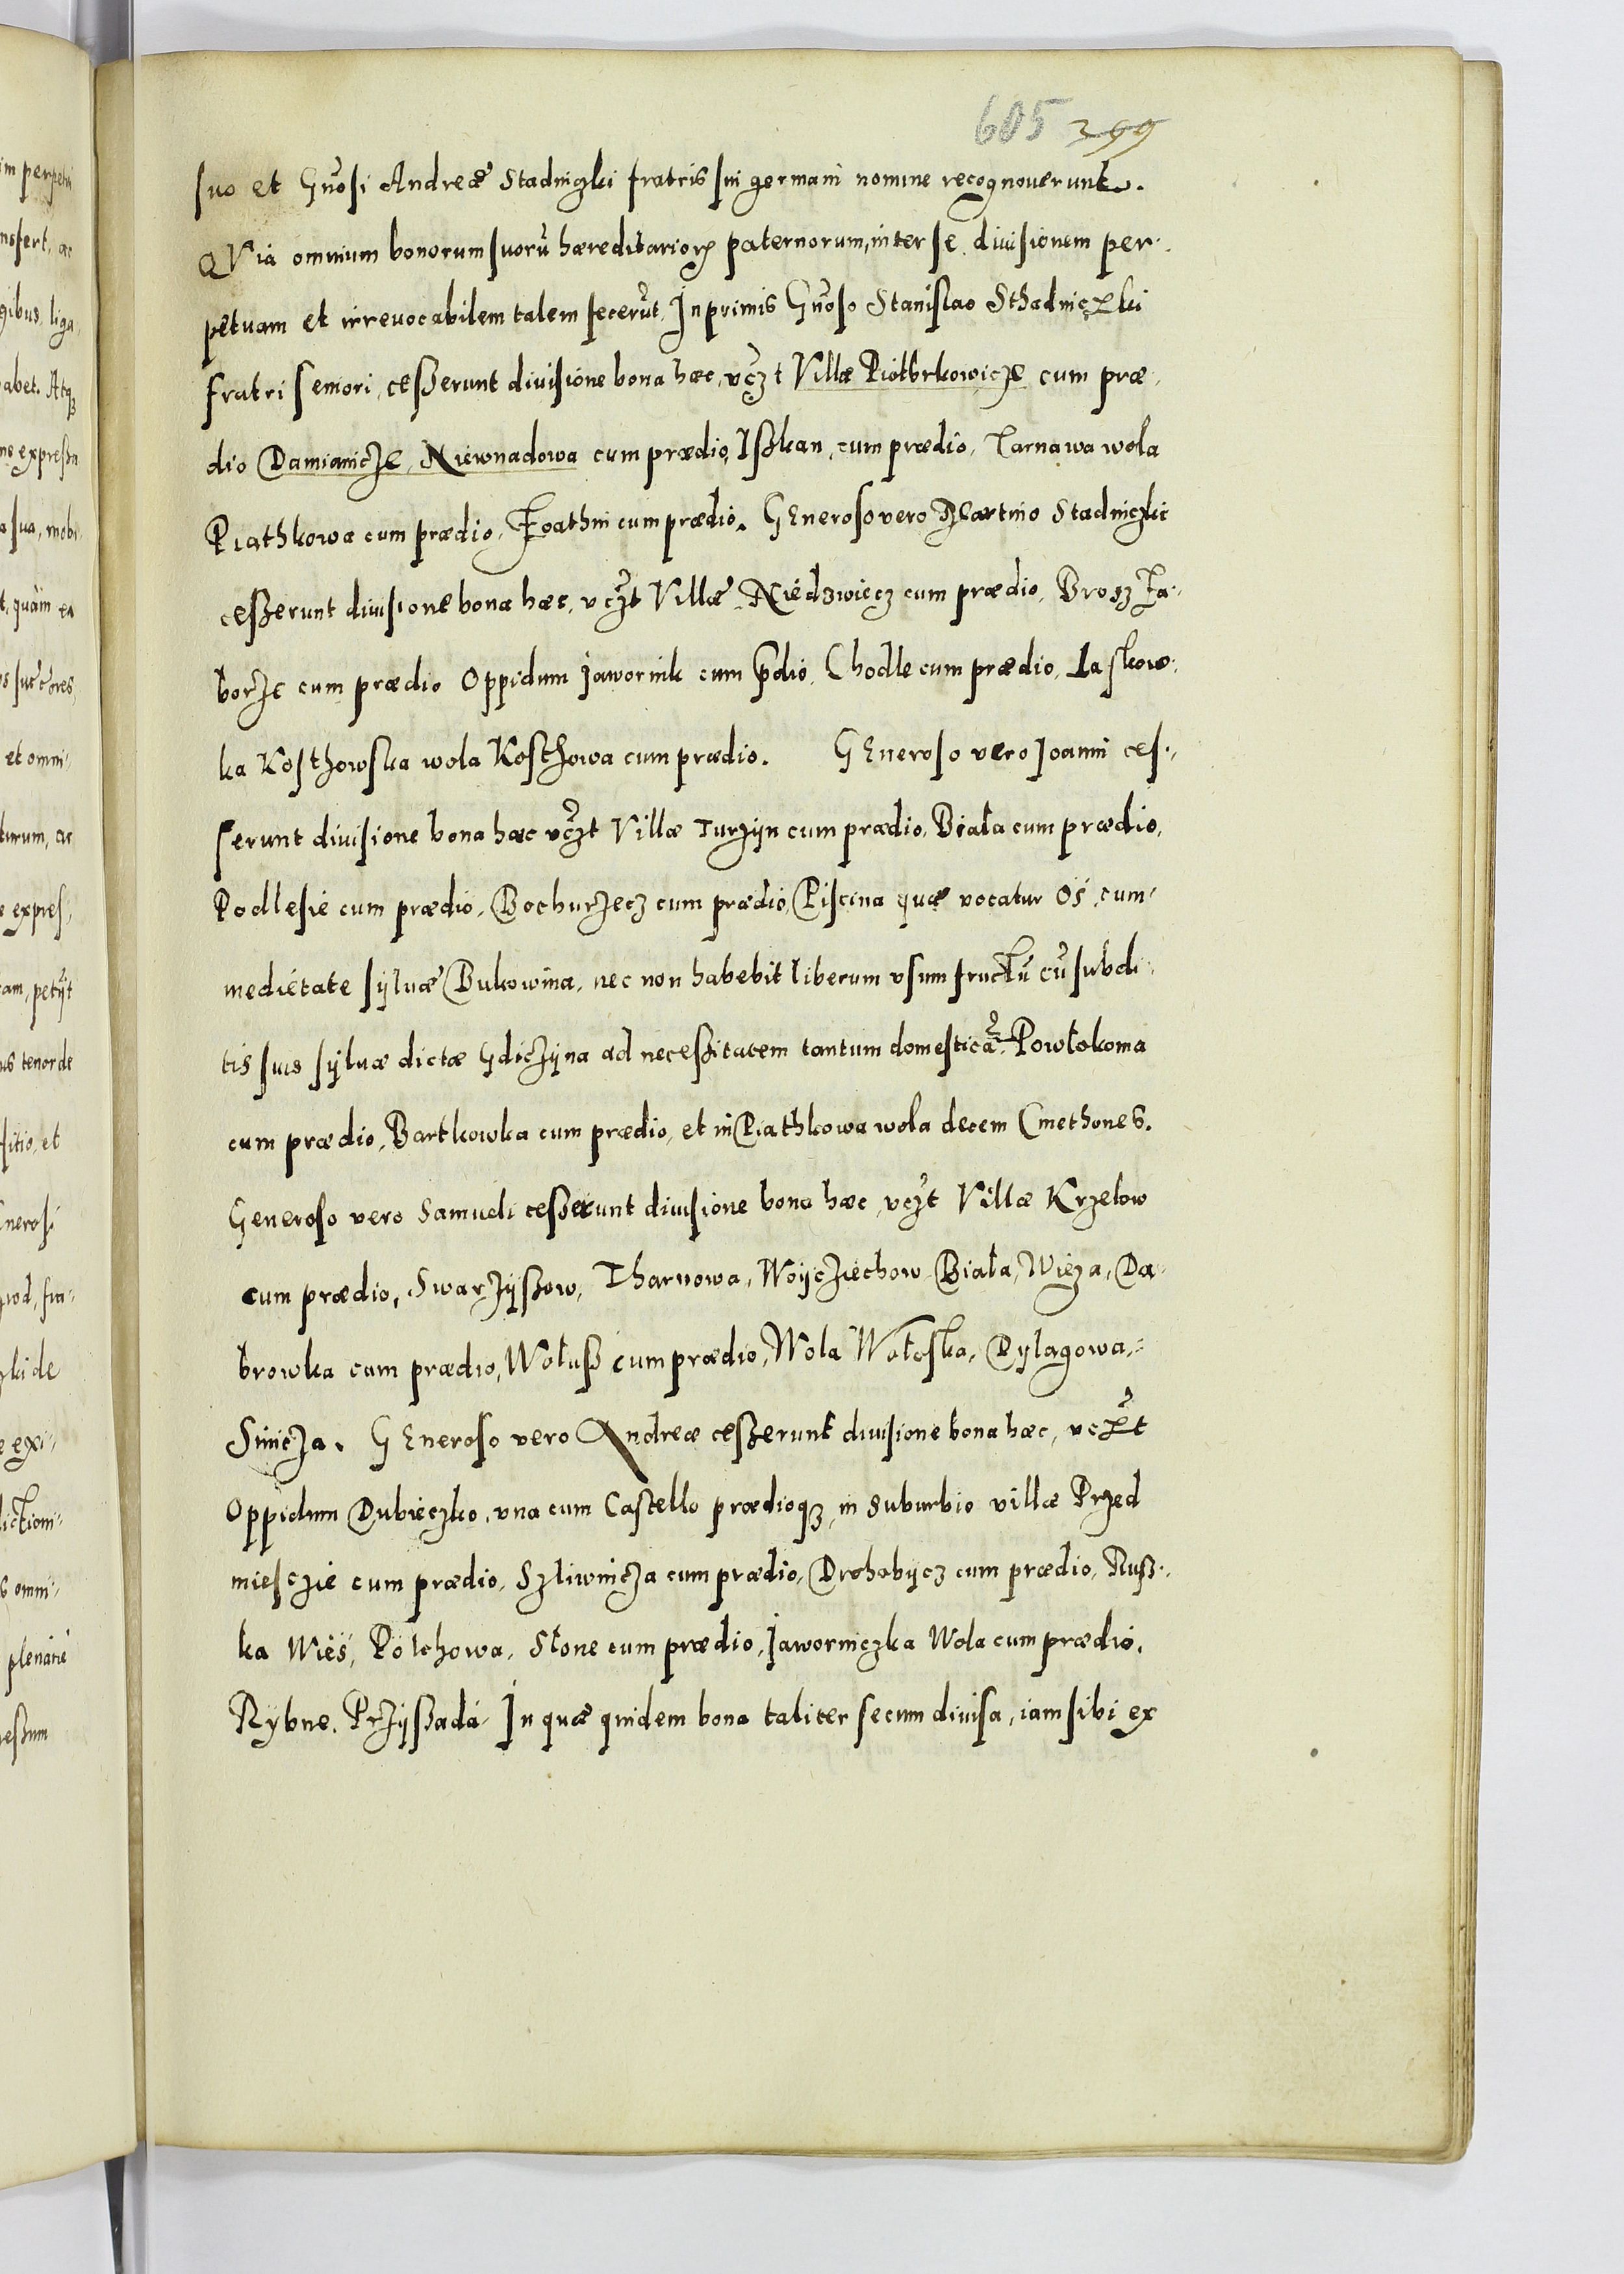 605 399
suo et Gnosi Andreæ Stadniczki fratris sui germani nomine recognouerunt.
QVia omnium bonorum suorũ hæreditarioꝝ paternorum, inter se diuisionem per-
petuam et irreuocabilem talem fecerũt, Inprimis Gnoso Stanislao Sthadniczki
fratri seniori, ceßerunt diuisione bona hæc, vczt Villæ Piotbrkowicze cum præ-
dio Damianicze, Niewnadowa cum prædio, Ißkan, cum prædio, Tarnawa wola
Piathkowa cum prædio, cum prædio. GEneroso vero Martino Stadniczki
ceßerunt diuisione bona hæc, vczt Villæ Niedzwiecz cum prædio, Brosz Ta-
borze cum prædio Oppidum Jawornik cum p̃dio, Chodle cum prædio, Laskow-
ka Kosthowska wola Kosthowa cum prædio. GEneroso vero Joanni ces-
serunt diuisione bona hæc vczt Villæ Turzyn cum prædio, Biała cum prædio,
Podlesie cum prædio, Bochurzecz cum prædio, Piscina quæ vocatur Oś, cum
medietate syluæ Bukowina, nec non habebit liberum vsum fructũ cũ subdi-
tis suis syluæ dictæ Gdiczyna ad neceßitatem tantum domesticã. Powłokoma
cum prædio, Bartkowka cum prædio, et in Piathkowa wola decem Cmethones.
Generoso vero Samueli ceßerunt diuisione bona hæc, vczt Villæ Krzelow
cum prædio, Swarzyßow, Tharnowa, Woycziechow Biała, Wieza, Da-
browka cum prædio, Wołuß cum prædio, Wola Wołoska, Dylagowa,
Sinicza. GEneroso vero Andreæ ceßerunt diuisione bona hæc, vczt
Oppidum Dubieczko, vna cum Castello prædioqz, in suburbio villæ Przed
miesczie cum prædio, Szliwnicza cum prædio, Drohobycz cum prædio, Ruß-
ka Wieś, Polchowa, Słone cum prædio, Jaworniczka Wola cum prædio,
Rybne, Przyßada. In quæ quidem bona taliter secum diuisa, iam sibi ex